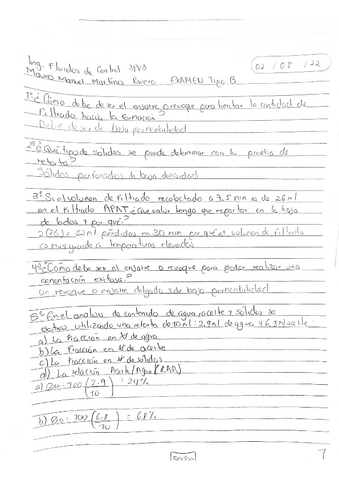 Ing. Fluidos de Control 3PV3
02 / 05 / 22
Mauro Manuel Martínez Rivero EXAMEN Tipo B
1º ¿Cómo debe de ser el enjarre o revoque para limitar la cantidad de
filtrado hacia la formación?
Debe de ser de baja permeabilidad
2º ¿Qué tipo de sólidos se puede determinar con la prueba de
retorta?
Sólidos perforados de baja densidad
3º Si el volumen de filtrado recolectado a 7.5 min es de 26 ml
en el filtrado APAT ¿Que valor tengo que reportar en la hoja
de lodos y por qué?
2(26) = 52 ml perdidos en 30 min por qué el volumen de filtrado
es muy grande a temperaturas elevadas
4º ¿Cómo debe ser el enjarre o revoque para poder realizar una
cementación exitosa?
Un revoque o enjarre delgado y de baja permeabilidad
5º En el analisis de contenido de agua, aceite y sólidos se
obtuvo utilizando una retorta de 10 ml: 2.9 ml de agua y 6.8 ml aceite
a) La fracción en % de agua
b) La fracción en % de aceite
c) La fracción en % de sólidos
d) La relación Aceite/Agua (RAA)
a) = 100 (2.9/10) = 29%
b) = 100 (6.8/10) = 68%
7